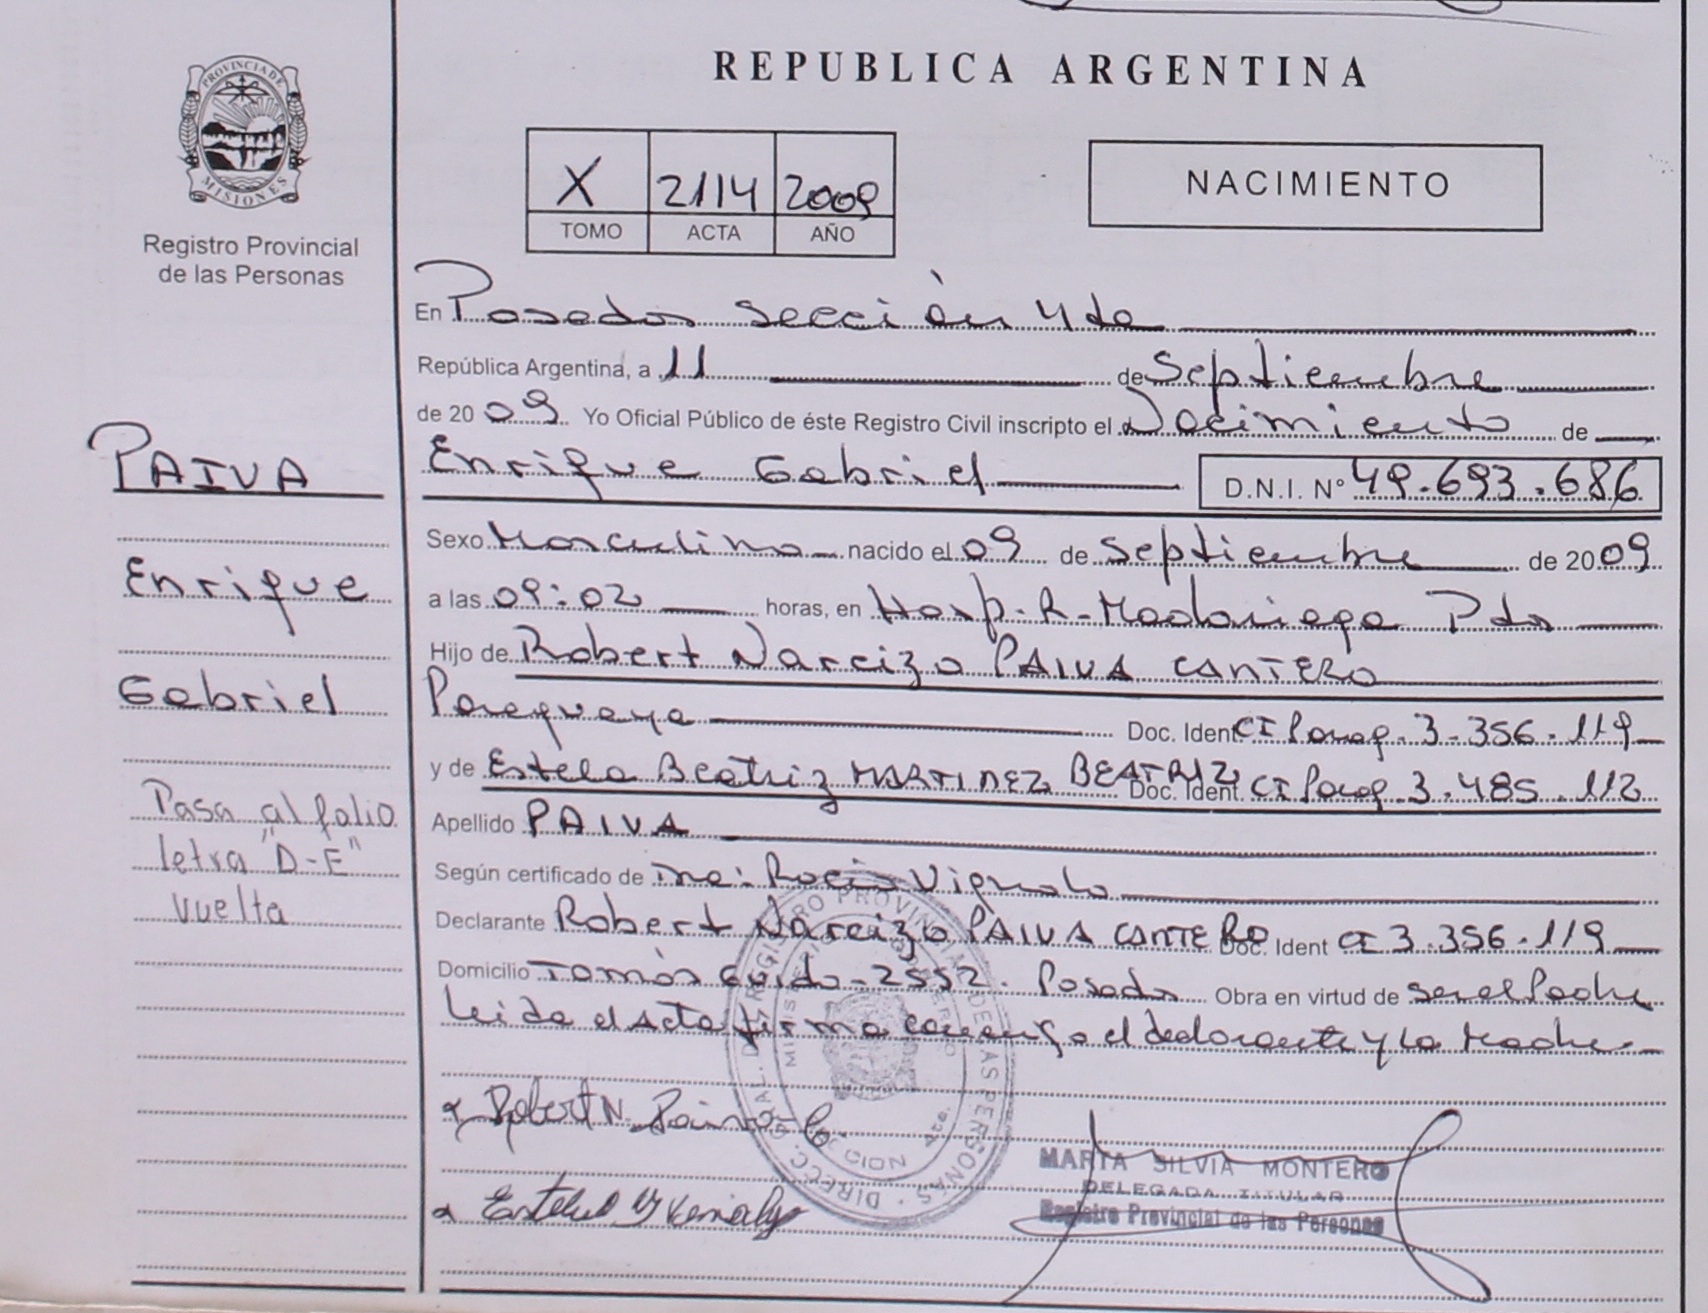 PROVINCIA DE
MISIONES
Registro Provincial
de las Personas
PAIVA
Enrique
Gabriel
Pasa al folio
letra "D-E"
vuelta
REPUBLICA ARGENTINA
X 2114 2009
TOMO ACTA AÑO
NACIMIENTO
En Posadas sección 4ta
República Argentina, a 11 de Septiembre
de 2009 Yo Oficial Público de éste Registro Civil inscripto el Nacimiento de
Enrique Gabriel D.N.I. Nº 49.693.686
Sexo Masculino nacido el 09 de septiembre de 2009
a las 09:02 horas, en Hosp. R. Madariaga Pdas
Hijo de Robert Narcizo PAIVA CANTERO
Paraguaya Doc. Ident CI Parag. 3.356.119
y de Estela Beatriz MARTINEZ BEATRIZ Doc. Ident. CI Parag. 3.485.112
Apellido PAIVA
Según certificado de Dra: Rocio Vignolo
Declarante Robert Narcizo PAIVA CANTERO Doc. Ident CI 3.356.119
Domicilio Tomás Guido 2552. Posadas Obra en virtud de ser el Padre
Leida el Acta firma conmigo el declarante y la Madre
Robert N. Paiva
MARTA SILVIA MONTERO
DELEGADA TITULAR
Registro Provincial de las Personas